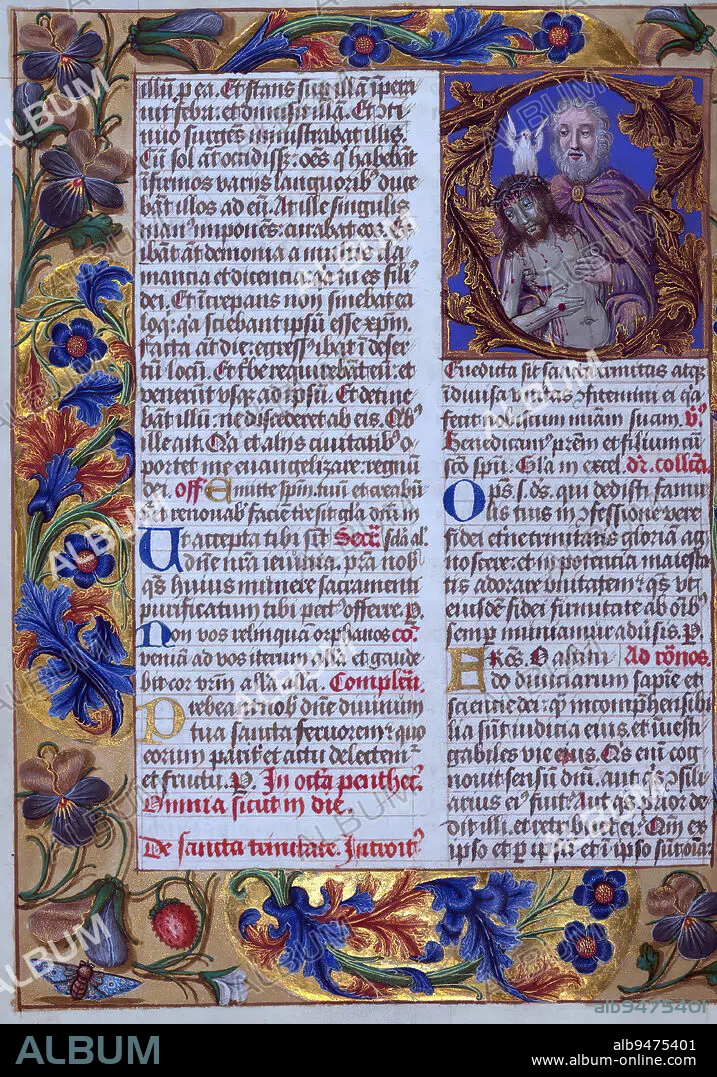 illū p ea. Et stans sup illā īpera
uit febri. et dimisit illā. Et 9ti
nuo surgēs ministrabat illis.
Cū sol at occidissꝫ: oēs q̇ habebāt
īfirmos variis languoribꝰ duce
bāt illos ad eū. At ille singulis
manꝰ imponēs: curabat eos. Ex
ibāt āt demonia a multis cla
mantia et dicentia: qia tu es filiꝰ
dei. Et īcrepans non sinebat ea
loq̇: qa sciebant ipsū esse xpm̄.
facta āt die: egressꝰ ibat ī deser
tū locū. Et t̄be requirebāt eū: et
venerūt vsqꝫ ad ipsū. Et detine
bāt illū: ne discederet ab eis. Qbꝰ
ille ait. Qa et aliis ciuitatibꝰ o
portet me euangelizare regnū
dei. off Emitte spm̄ tuū et creabūt
et renouabꝭ faciem t̄re sit gl̄a dn̄i in
Ut accepta tibi sīt Secr̄.
dn̄e nr̄a ieiunia. pr̄a nobꝭ
qs huius munere sacramenti
purificatum tibi pect̄ offerre. P.
Non vos relinquā orphanos cō.
veniā ad vos iterum all̄a et gaude
bit cor vr̄m all̄a all̄a. Complen̄.
Prebeant nobꝭ dn̄e diuinum
tua sancta feruorem: quo
eorum parit̄ et actu delectemꝛ
et fructu. P. In octa penthec̄.
Omnia sicut in die.
De sancta trinitate. Introitꝰ
Benedicta sit sancta trinitas atqꝫ
indiuisa vnitas 9fitemini ei qa
fecit nobiscum miam̄ suam. Vꝰ
Benedicamꝰ prem̄ et filium cū
scō spū. Gl̄a in excel. dr̄. collca.
Ops̄ s. ds̄. qui dedisti famu
lis tuis in 9fessione vere
fidei et̄ne trinitatis gloriam ag
noscere: et in potentia maiesta
tis adorare vnitatem: qs vt
eiusdē fidei firmitate ab oīb̄ꝰ
semp muniamur aduˀsis. P.
Ad rōnos.
do diuiciarum sapiē et
sciencie dei: qꝫ incomphensibi
lia sūt iudicia eius. et īuesti
gabiles vie eius. Qs enī cog
nouit sensū dn̄i. aut qs 9sili
arius eiꝰ fuit: Aut qs prior de
dit illi. et retribuet̄ ei: Qm̄ ex
ipso et p ipm̄ et ī ipso sūt oīa.
ALBUM
alb9475401
ALBUM
alb9475401
© album-online.com